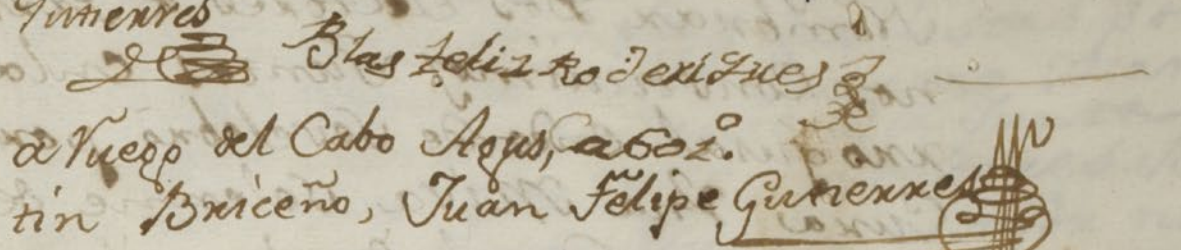 Gutierres
Blas Feliz Roderigues
a Ruego del Cabo Agus,
tin Briceño, Juan Felipe Gutierres